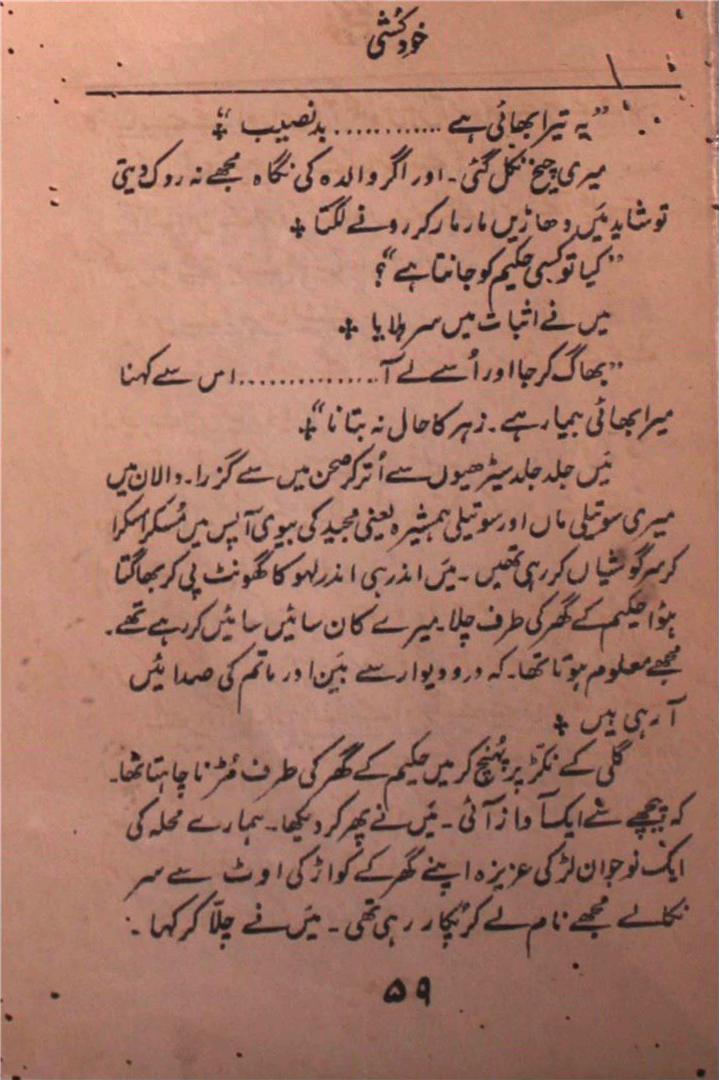 خودکُشی
”یہ تیرا بھائی ہے ............ بدنصیب“ ✤
میری چیخ نکل گئی۔ اور اگر والدہ کی نگاہ مجھے نہ روک دیتی
تو شاید مَیں دھاڑیں مار مار کر رونے لگتا ✤
”کیا تو کسی حکیم کو جانتا ہے“؟
میں نے اثبات میں سر ہلایا ✤
”بھاگ کر جا اور اُسے لے آ............... اس سے کہنا
میرا بھائی بیمار ہے۔ زہر کا حال نہ بتانا“ ✤
مَیں جلد جلد سیڑھیوں سے اُتر کر صحن میں سے گزرا۔ دالان میں
میری سوتیلی ماں اور سوتیلی ہمشیرہ یعنی مجید کی بیوی آپس میں مُسکرا مسکرا
کر سرگوشیاں کر رہی تھیں۔ مَیں اندر ہی اندر لہو کا گھونٹ پی کر بھاگتا
ہؤا حکیم کے گھر کی طرف چلا۔ میرے کان سائیں سائیں کر رہے تھے۔
مجھے معلوم ہوتا تھا۔ کہ درو دیوار سے بَین اور ماتم کی صدائیں
آ رہی ہیں ✤
گلی کے نکڑ پر پہُنچ کر میں حکیم کے گھر کی طرف مُڑنا چاہتا تھا۔
کہ پیچھے سے ایک آواز آئی۔ مَیں نے پھر کر دیکھا۔ ہمارے محلہ کی
ایک نوجوان لڑکی عزیزہ اپنے گھر کے کواڑ کی اوٹ سے سر
نکالے مجھے نام لے کر پکار رہی تھی۔ مَیں نے چلّا کر کہا :۔
۵۹